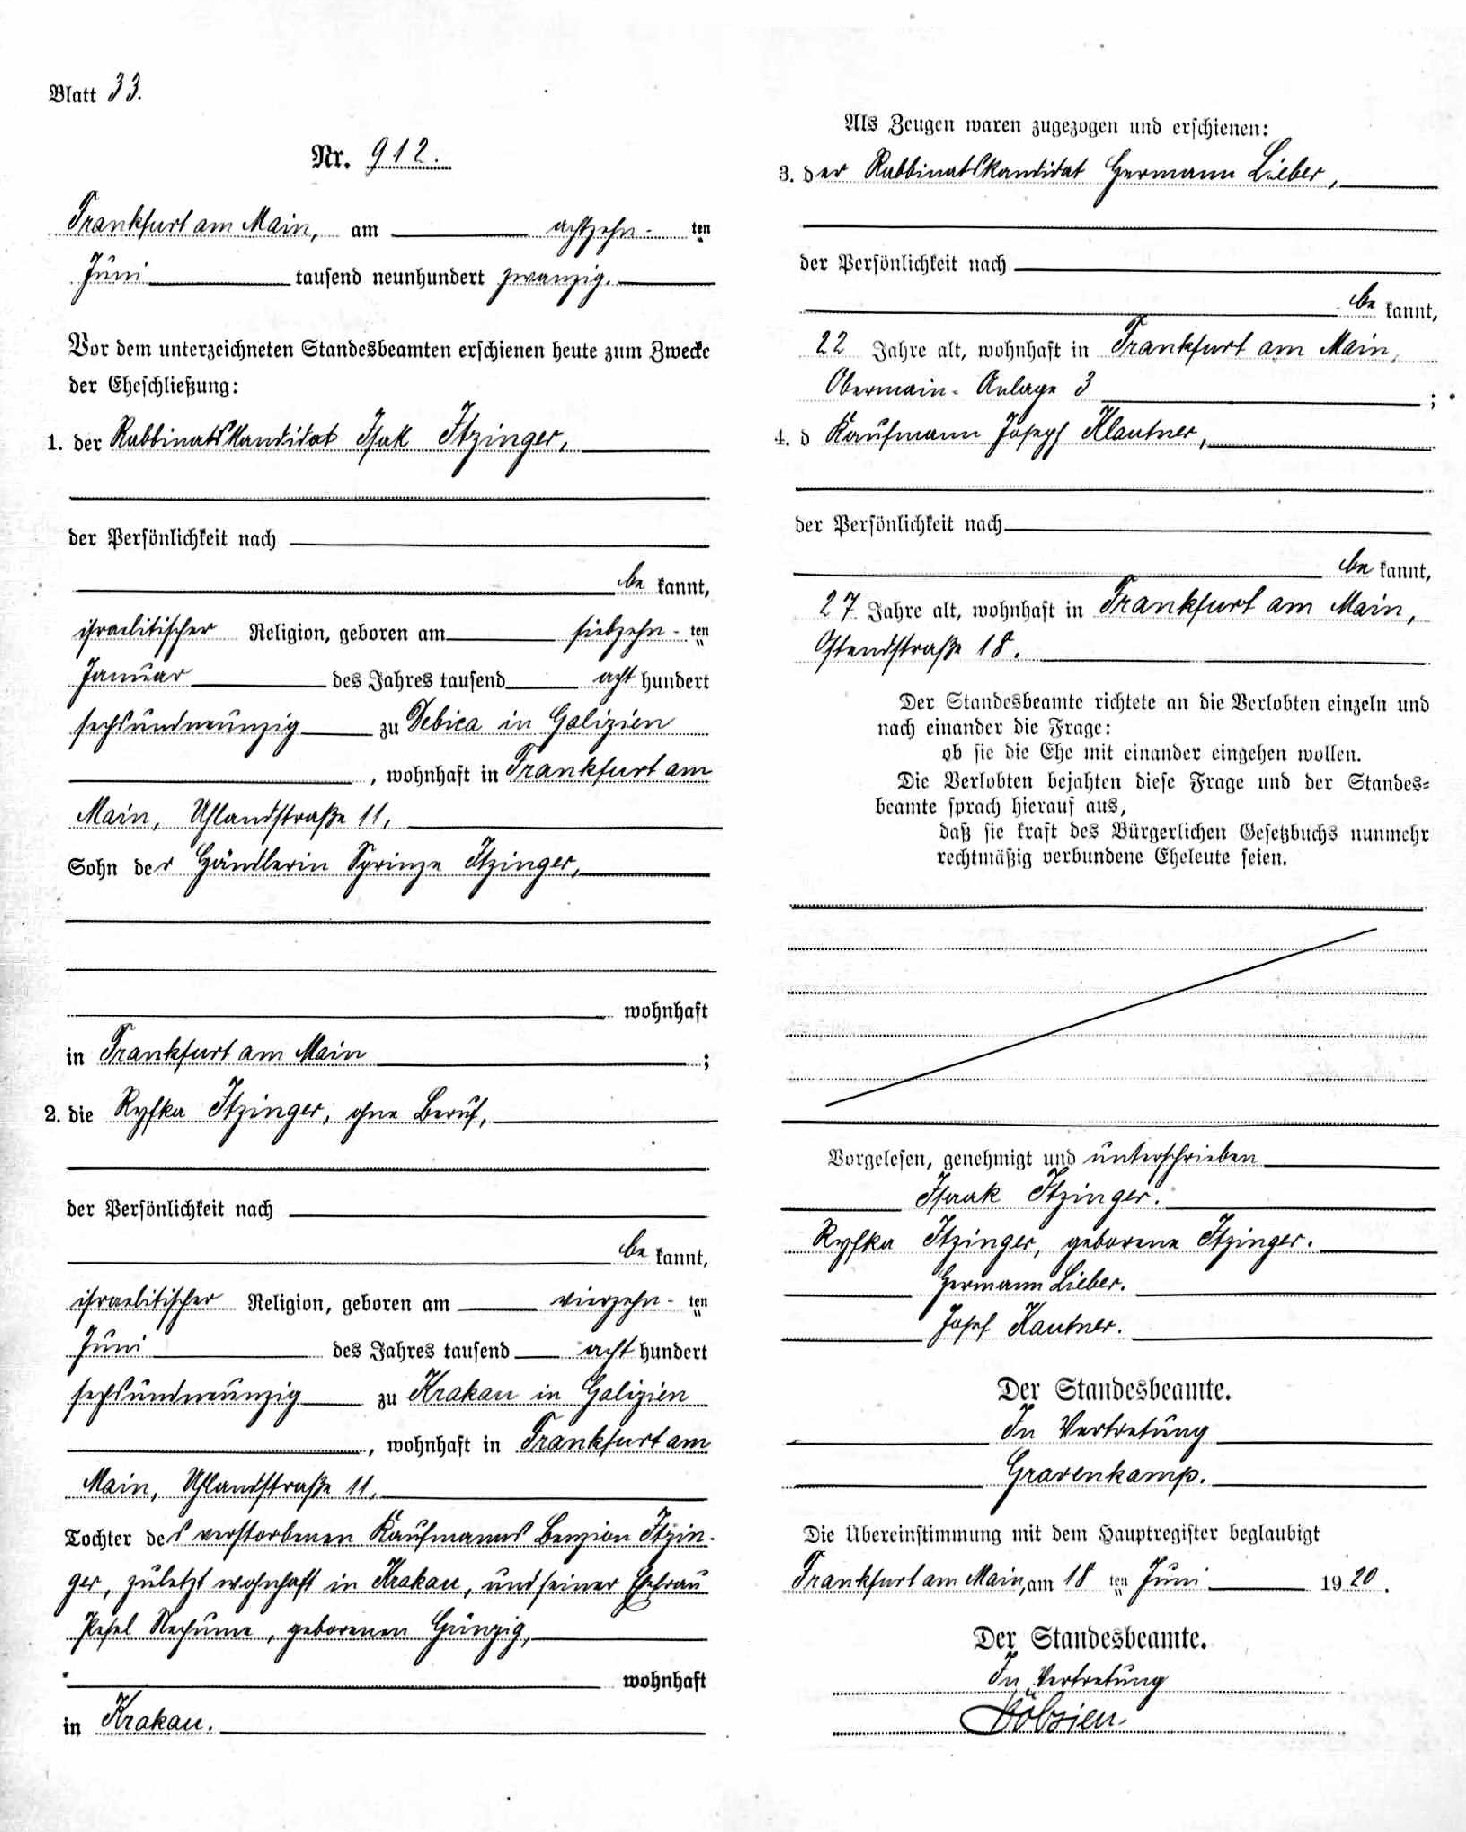 Blatt 33.
Nr. 912.
Frankfurt am Main, am achtzehn- ten
Juni tausend neunhundert zwanzig.
Vor dem unterzeichneten Standesbeamten erschienen heute zum Zwecke
der Eheschließung:
1. der Rabbinatskandidat Isak Itzinger,
der Persönlichkeit nach
be kannt,
israelitischer Religion, geboren am siebzehn- ten
Januar des Jahres tausend acht hundert
sechsundneunzig zu Debica in Galizien
, wohnhaft in Frankfurt am
Main, Uhlandstraße 11,
Sohn der Händlerin Sprinze Itzinger,
wohnhaft
in Frankfurt am Main ;
2. die Ryfka Itzinger, ohne Beruf,
der Persönlichkeit nach
be kannt,
israelitischer Religion, geboren am vierzehn- ten
Juni des Jahres tausend acht hundert
sechsundneunzig zu Krakau in Galizien
, wohnhaft in Frankfurt am
Main, Uhlandstraße 11,
Tochter des verstorbenen Kaufmanns Benzion Itzin-
ger, zuletzt wohnhaft in Krakau, und seiner Ehefrau
Pesel Nechume, geborenen Günzig,
wohnhaft
in Krakau.
Als Zeugen waren zugezogen und erschienen:
3. der Rabbinatskandidat Hermann Lieber,
der Persönlichkeit nach
be kannt,
22 Jahre alt, wohnhaft in Frankfurt am Main,
Obermain-Anlage 3 ;
4. d Kaufmann Joseph Klautner,
der Persönlichkeit nach
be kannt,
27 Jahre alt, wohnhaft in Frankfurt am Main,
Ostendstraße 18.
Der Standesbeamte richtete an die Verlobten einzeln und
nach einander die Frage:
ob sie die Ehe mit einander eingehen wollen.
Die Verlobten bejahten diese Frage und der Standes-
beamte sprach hierauf aus,
daß sie kraft des Bürgerlichen Gesetzbuchs nunmehr
rechtmäßig verbundene Eheleute seien.
Vorgelesen, genehmigt und unterschrieben
Isaak Itzinger.
Ryfka Itzinger, geborene Itzinger.
Hermann Lieber.
Josef Klautner.
Der Standesbeamte.
In Vertretung
Gravenkamp.
Die Übereinstimmung mit dem Hauptregister beglaubigt
Frankfurt am Main, am 18 ten Juni 1920.
Der Standesbeamte.
In Vertretung